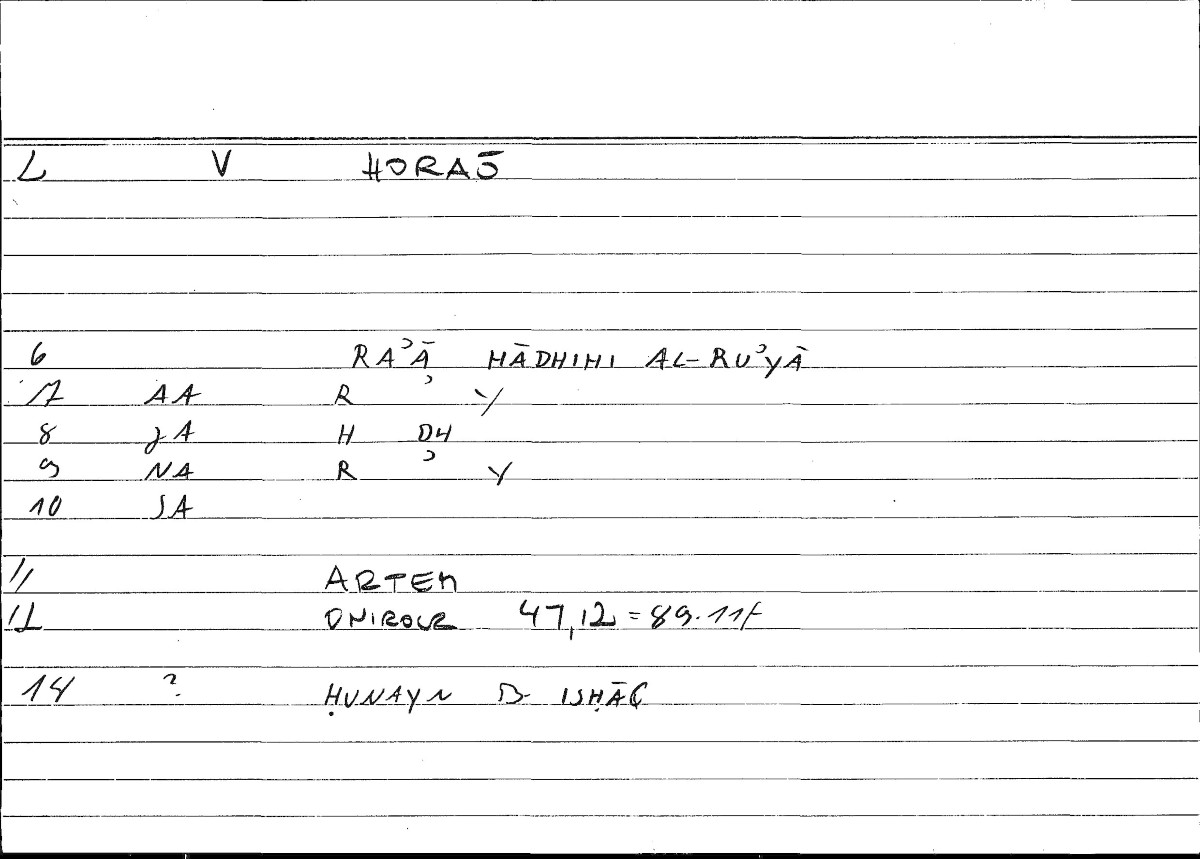 L V HORAŌ
6 RAʾĀ HĀDHIHI AL-RUʾYĀ
7 AA R ʾ Y
8 JA H DH
9 NA R ʾ Y
10 SA
11 ARTEM
12 ONIROCR 47,12 = 89.11f
14 ? ḤUNAYN B ISḤĀQ